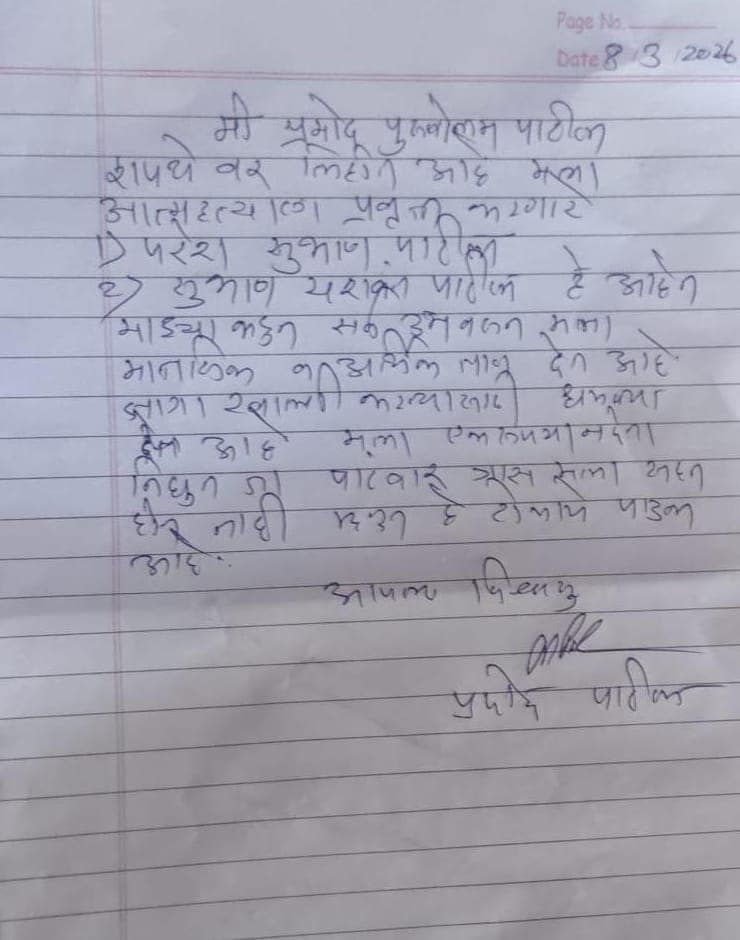 Page No.
Date 8/3/2026
मी प्रमोद पुरुषोत्तम पाटील
शपथे वर लिहीत आहे मला
आत्महत्याला प्रवृत्त करणारे
1) परेश सुभाष पाटील
2) सुभाष यशवंत पाटील हे आहेत
माझ्या कडुन
मानसिक व आर्थिक त्रास देत आहे
जागा खाली करण्यासाठी धमक्या
देत आहे मला एक रुपया न देता
निघुन जा त्रास मला सहन
होत नाही म्हणुन हे टोकाचे पाउल
आहे.
आपला विश्वासु
प्रमोद पाटील